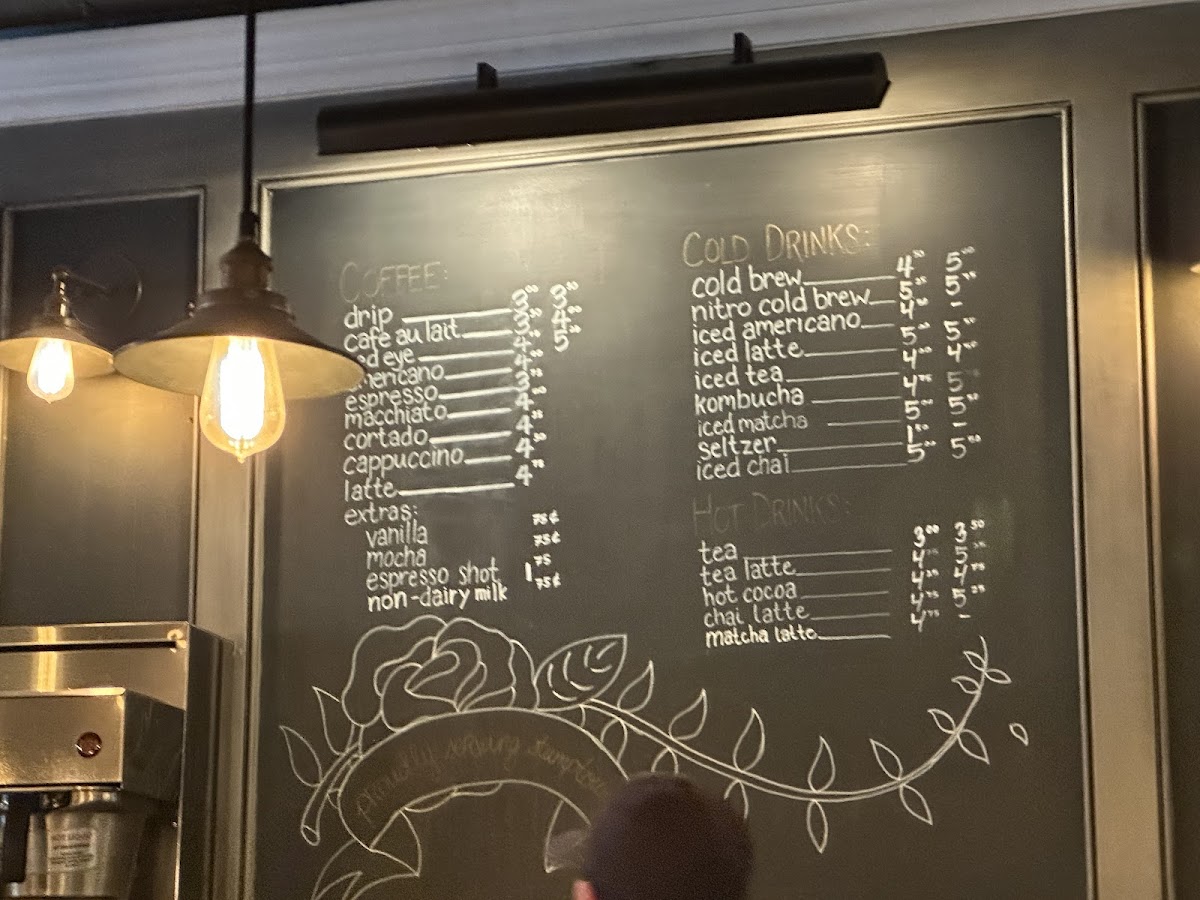 COFFEE:
drip 3⁰⁰ 3⁵⁰
café au lait 3⁵⁰ 4⁰⁰
ed eye 4⁰⁰ 5
americano 4⁰⁰
espresso 3
macchiato 4
cortado 4
cappuccino 4⁵⁰
latte 4⁷⁵
extras:
vanilla 75¢
mocha 75¢
espresso shot 1⁷⁵
non-dairy milk 75¢
COLD DRINKS:
cold brew 4⁵⁰ 5⁰⁰
nitro cold brew 5 5
iced americano 4 -
iced latte 5 5
iced tea 4⁰⁰ 4
kombucha 4⁷⁵ 5
iced matcha 5 5
seltzer 1⁵⁰ -
iced chai 5 5⁵⁰
HOT DRINKS:
tea 3⁰⁰ 3⁵⁰
tea latte 4 5
hot cocoa 4 4⁷⁵
chai latte 4⁷⁵ 5²⁵
matcha latte 4⁷⁵ -
proudly serving stumptown